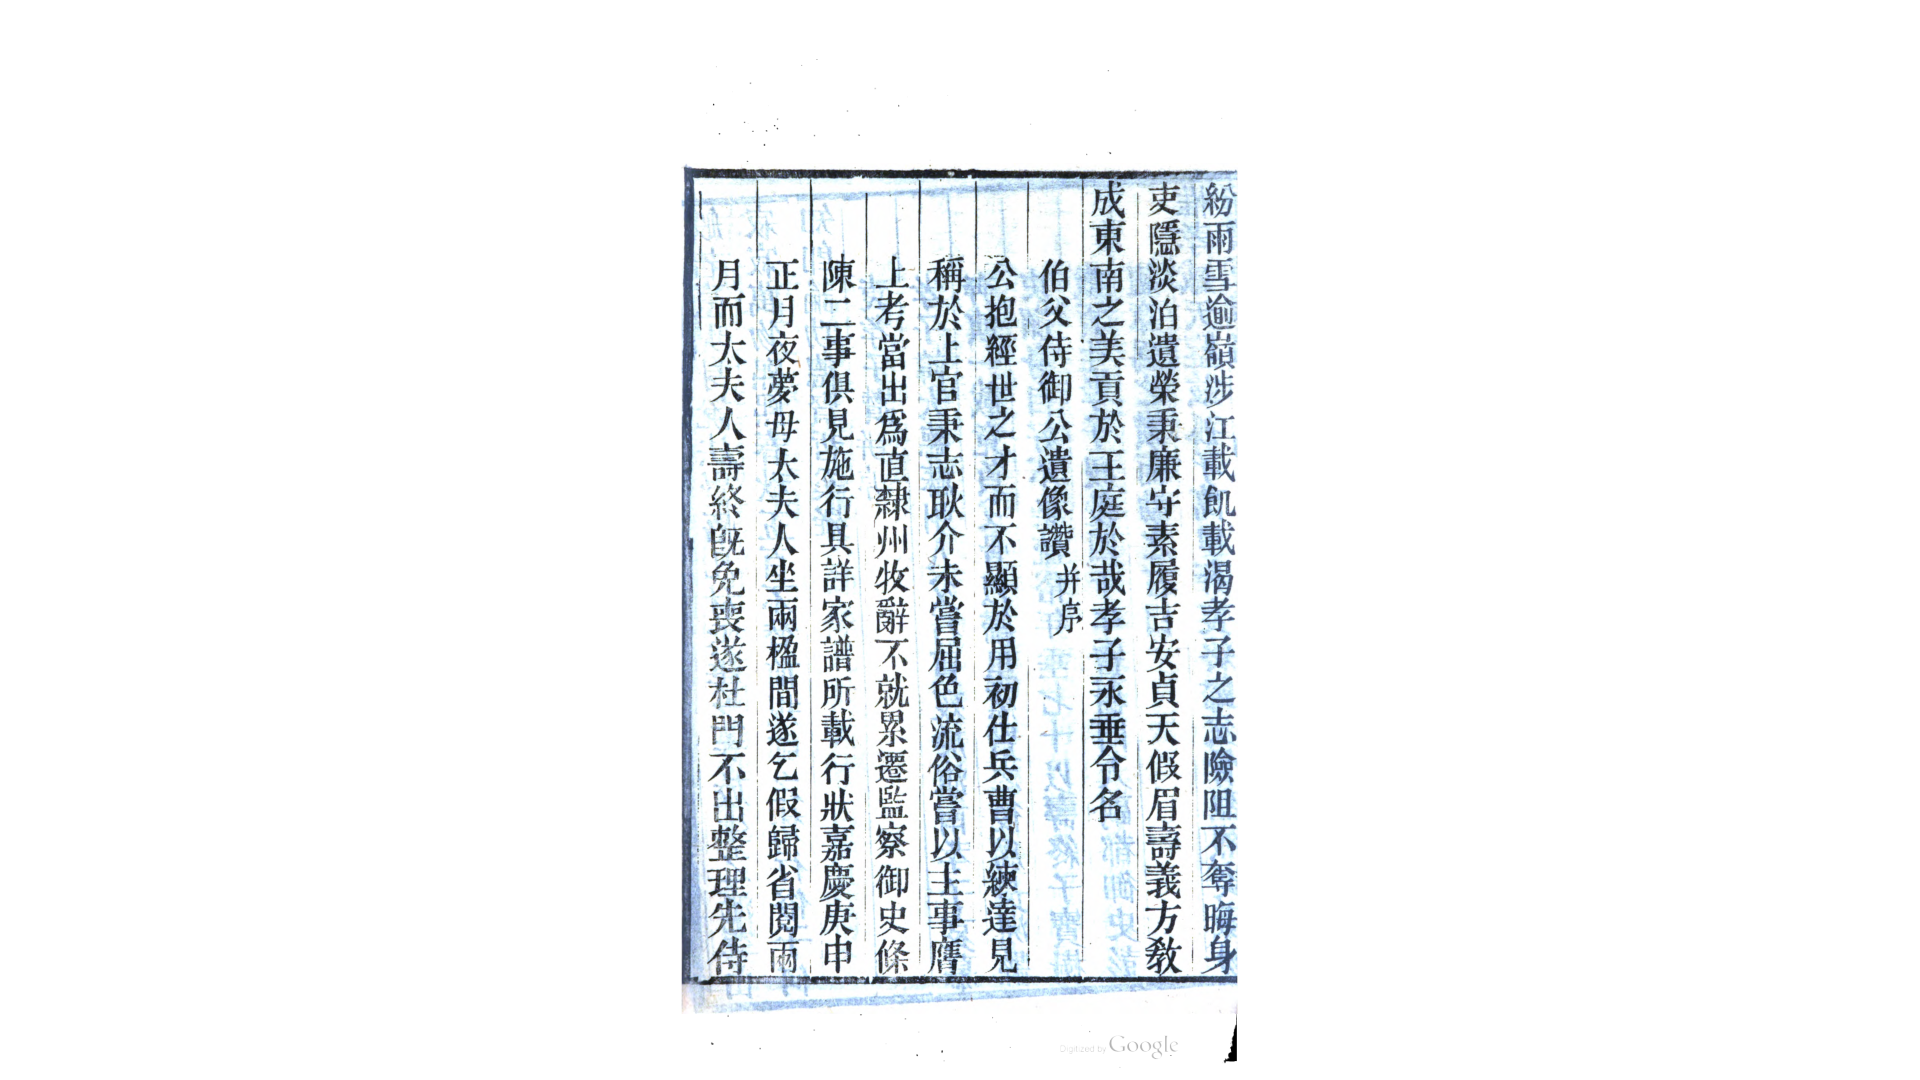 紛雨雪逾嶺涉江載飢載渴孝子之志險阻不奪晦身
吏隱淡泊遺榮秉廉守素履吉安貞天假眉壽義方敎
成東南之美貢於王庭於哉孝子永垂令名
伯父侍御公遺像讚并序
公抱經世之才而不顯於用初仕兵曹以練達見
稱於上官秉志耿介未嘗屈色流俗嘗以主事膺
上考當出爲直隸州牧辭不就累遷監察御史條
陳二事俱見施行具詳家譜所載行狀嘉慶庚申
正月夜夢母太夫人坐兩楹間遂乞假歸省閱兩
月而太夫人壽終旣免喪遂杜門不出整理先侍
Digitized by Google